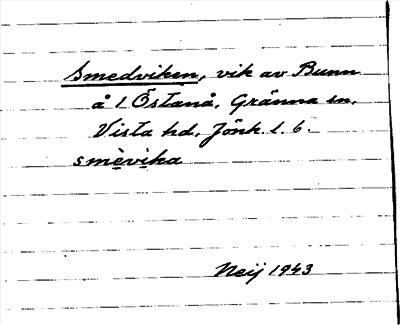 Smedviken, vik av Bunn
å 1 Östanå, Gränna sn,
Vista hd, Jönk. l. b.
smèvika
Neij 1943